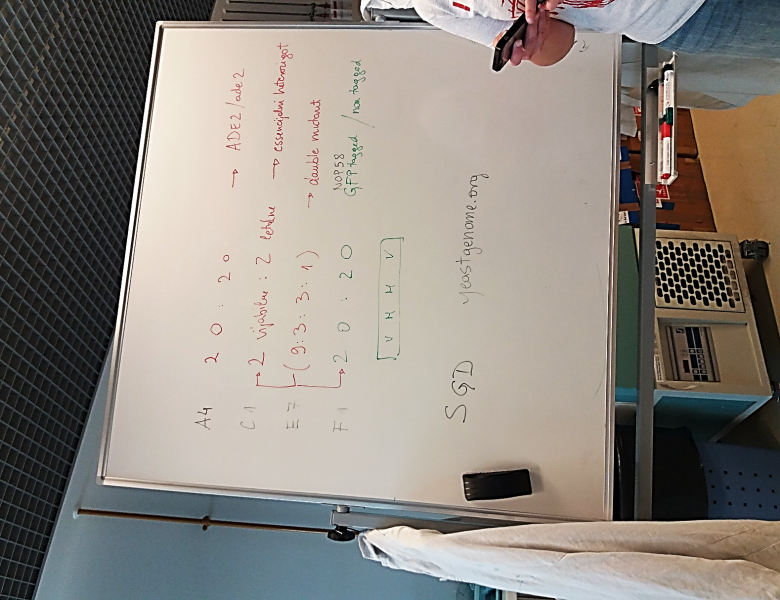 A4 2 0 : 2 0 → ADE2/ade2
C1 2 vijabilne : 2 letalne → esencijalni heterozigot
E7 (9:3:3:1) → double mutant
F1 2 0 : 2 0 NOP58 GFP tagged / non tagged
V H H V
SGD yeastgenome.org